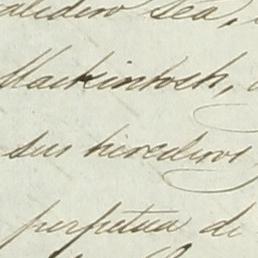 valedero sea,
Mackintosh,
sus herederos
perpetua de